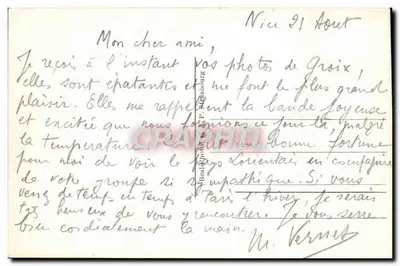 Nice 21 Aout
Mon cher ami,
Je reçois à l'instant vos photos de Groix,
elles sont épatantes et me font le plus grand
plaisir. Elles me rappellent la bande joyeuse
et excitée que nous formions ce jour là, malgré
la température. C'était une bonne fortune
pour moi de voir le pays Lorientais en compagnie
de votre groupe si sympathique. Si vous
venez de temps en temps à Paris l'hiver, je serais
très heureux de vous y rencontrer. Je vous serre
bien cordialement la main.
M. Vernet
CARPHILA